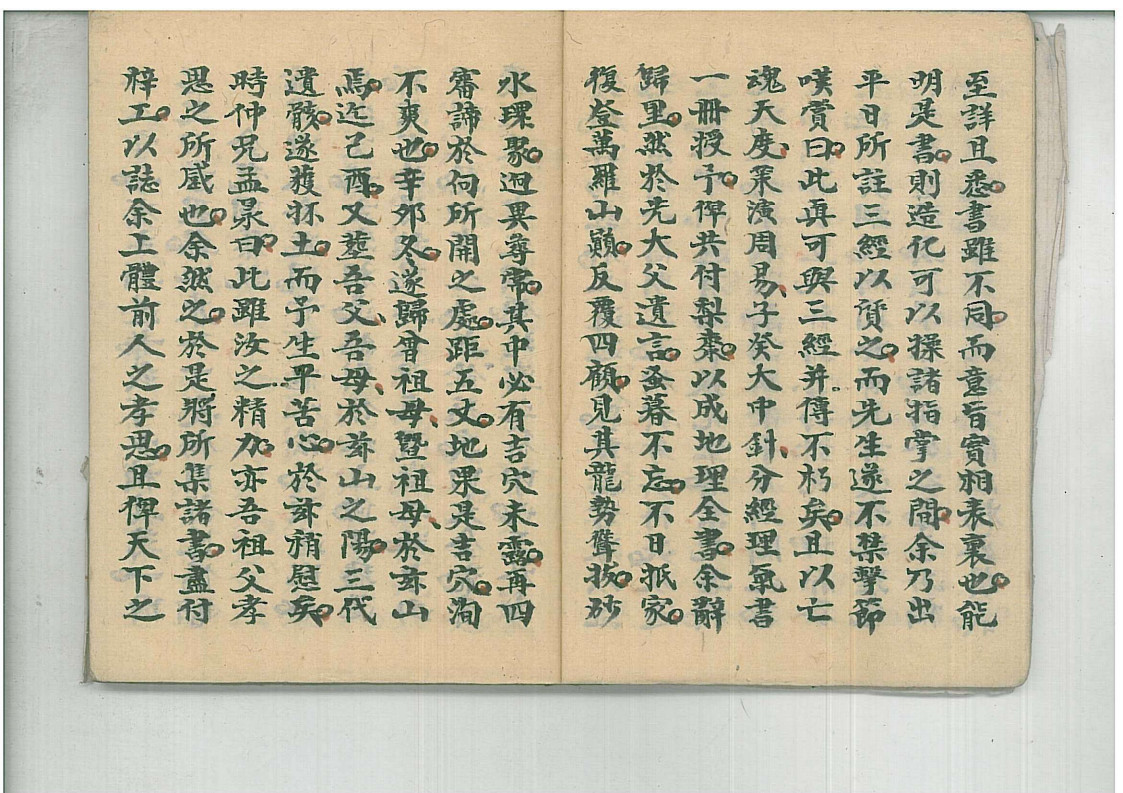 至詳且悉。書雖不同。而意旨實相表裏也。能
明是書。則造化可以操諸指掌之間。余乃出
平日所註三經以質之。而先生遂不禁擊節
嘆賞曰。此真可與三經并傳不朽矣。且以亡
魂天度、策演周易、子癸大中針、分經理氣書
一冊授予。俾共付梨棗。以成地理全書。余辭
歸里。然於先大父遺言。蚤暮不忘。不日抵家。
復登萬羅山巔。反覆四顧。見其龍勢聳拔。砂
水環聚。迥異尋常。其中必有吉穴未露。再四
審諦於何所開之處。距五丈。地果是吉穴。洵
不爽也。辛卯冬。遂歸曾祖母、暨祖母、於茲山
焉。迄己酉。又塟吾父、吾母、於茲山之陽。三代
遺骸。遂獲抔土。而予生平苦心。於茲稍慰矣。
時仲兄孟杲曰。此雖汝之精力。亦吾祖父孝
思之所感也。余然之。於是將所集諸書。盡付
梓工。以誌余上體前人之孝思。且俾天下之